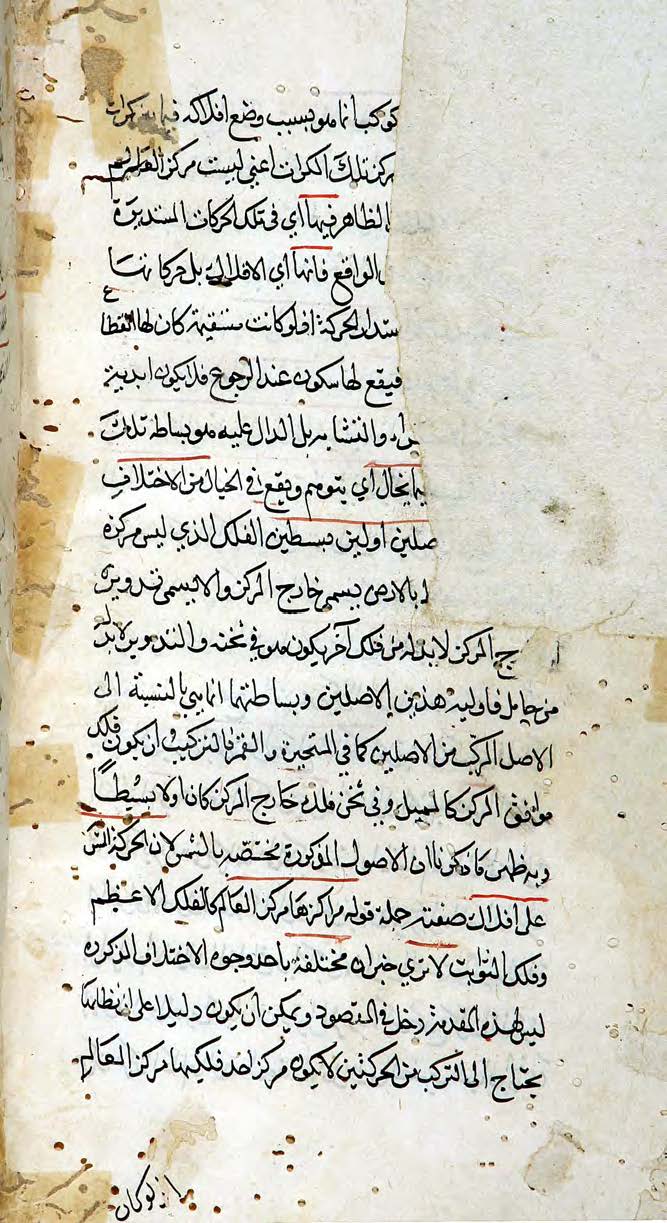 كوكب انما هو بسبب وضع افلاكه فيما بين كرات
مركز تلك الكرات اعني ليست مركز العالم
الظاهر فيها اي في تلك الحركات المستديرة
الواقع فانها اي الافلاك بل حركاتها
الحركة اذ لو كانت مستقيمة كان لها انقطاع
فيقع لها سكون عند الرجوع فلا يكون ابدية
والتشابه بل الدال عليه هو بساطة تلك
يخال اي يتوهم ويقع في الخيال من الاختلاف
اصلين اولين بسيطين الفلك الذي ليس مركزه
بالارض يسمى خارج المركز والا يسمى تدويره
ج المركز لا بد له من فلك آخر يكون هو في ثخنه والتدوير لا بد له
من حامل فاولية هذين الاصلين وبساطتهما انما هي بالنسبة الى
الاصل المركب من الاصلين كما في المتحيرة والقمر بالتركيب ان يكون فلك
موافق المركز كالمميل وفي ثخن فلك خارج المركز كان اولا بسيطا
وبه ظهر ما ذكرنا ان الاصول المذكورة مختصة بالشمس لان الحركة
على افلاك صفته جملة قوله مراكزها مركز العالم كالفلك الاعظم
وفلك الثوابت لا تري مختلفة باحد وجوه الاختلاف المذكوره
ليس لهذه المقدمة دخل في المقصود ويمكن ان يكون دليلا على ان نظامها
يحتاج الى التركب من الحركتين لا يكون مركز احد فلكيهما مركز العالم
اذ لو كان